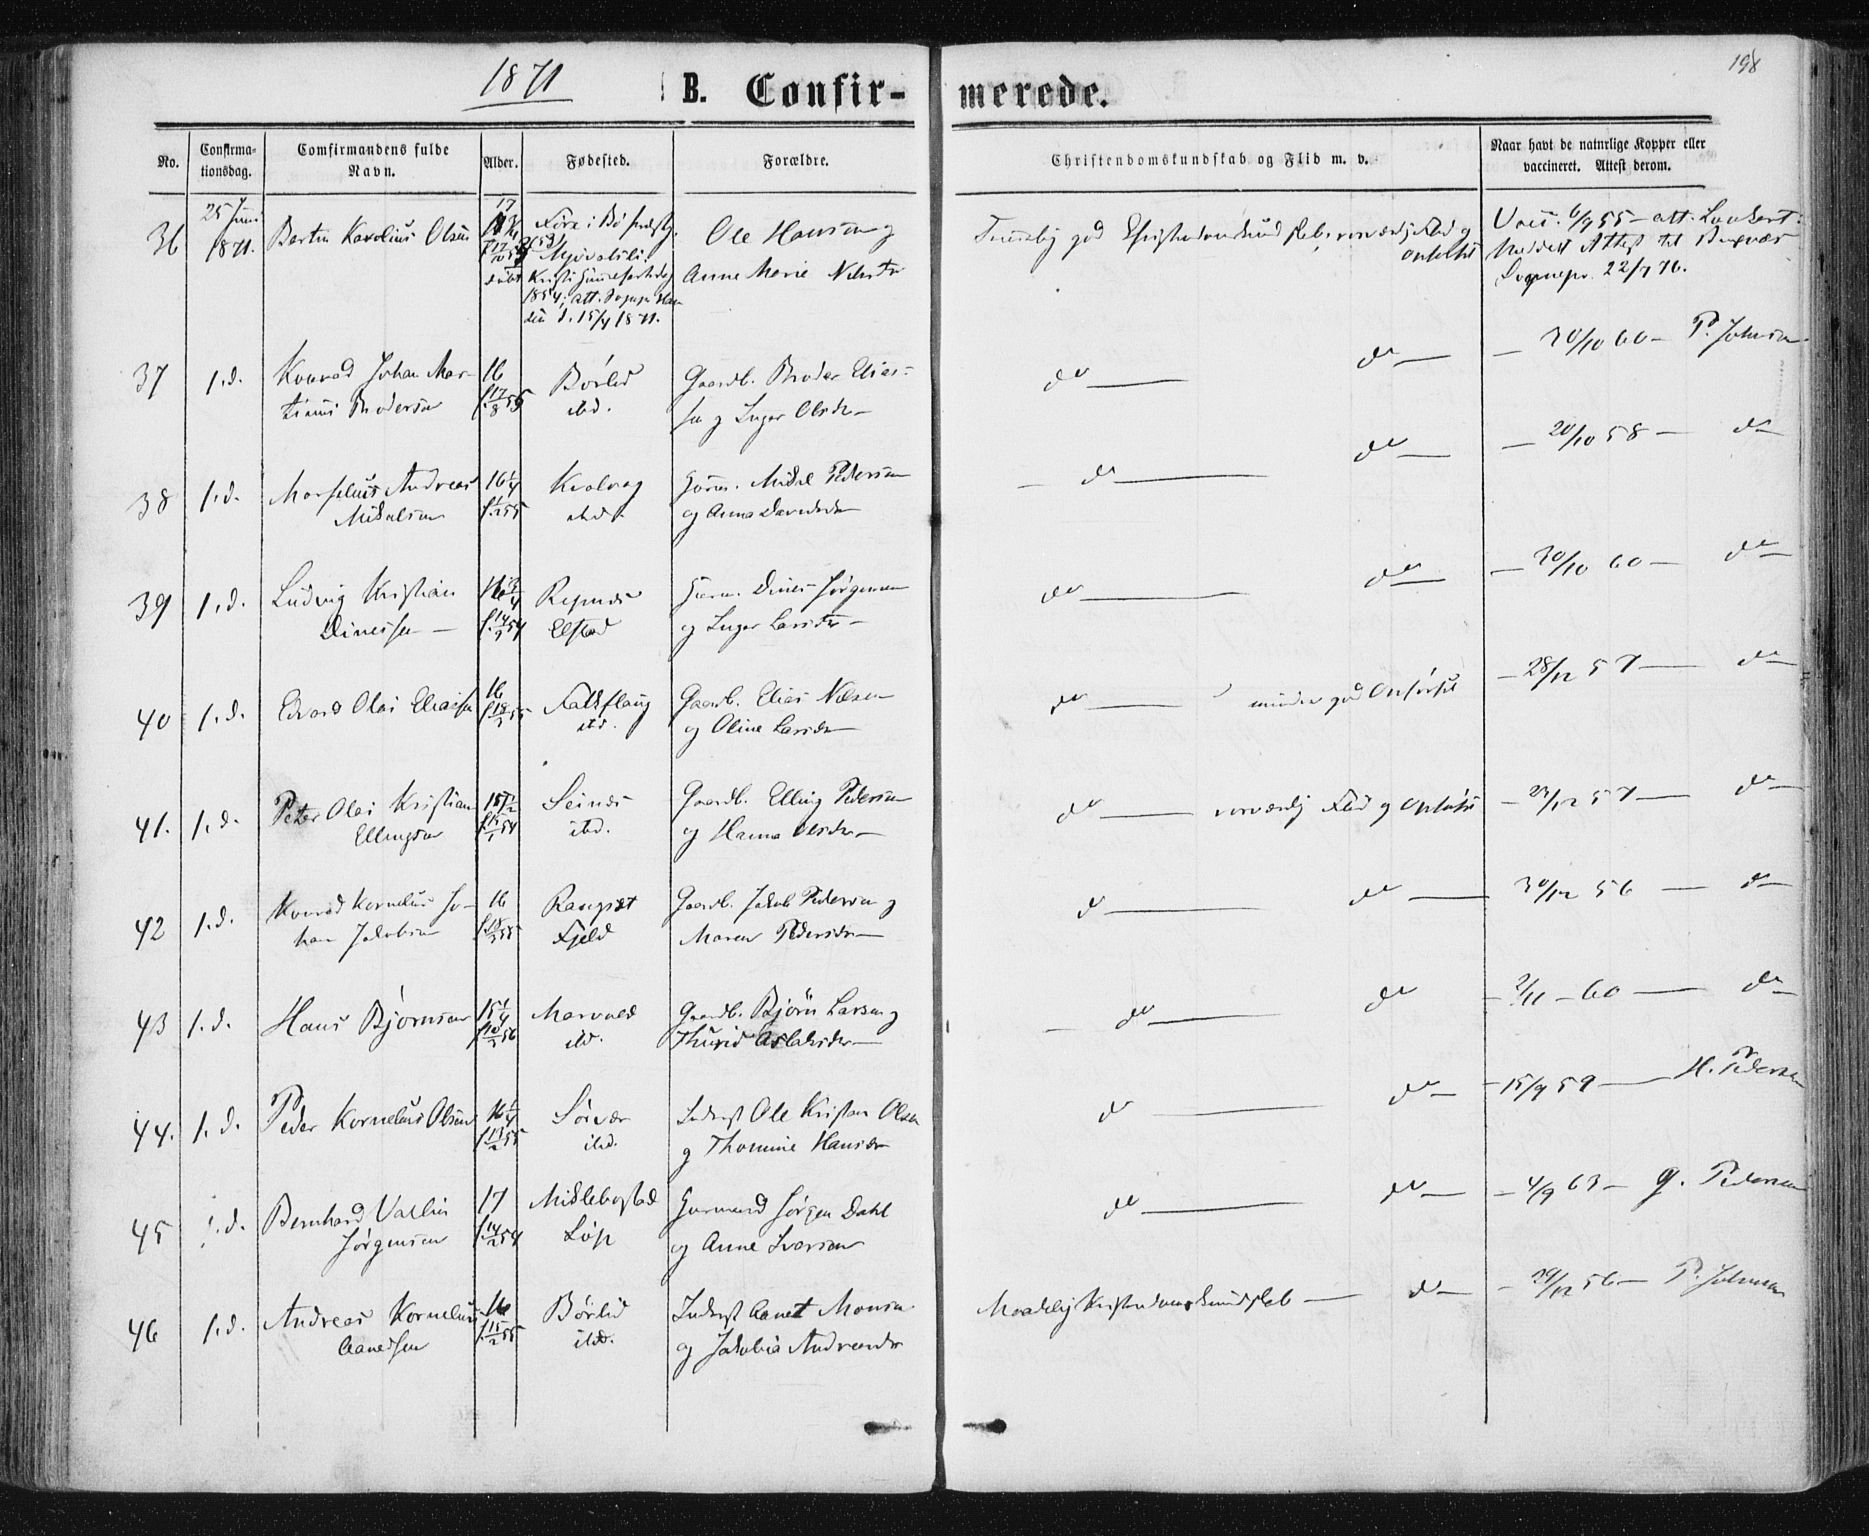 1871
B. Confir-
merede.
198
No.
Confirma-
tionsdag.
Comfirmandens fulde
Navn.
Alder.
Fødested.
Forældre.
Christendomskundskab og Flid m. v.
Naar havt de naturlige Kopper eller
vaccineret. Attest derom.
36
25 Juni
1871.
Bertin Karolius Olsen
17
Føre i Bø
døbt
Kristi Himmelfartsdag
1854; att. Sognepr.
d. 15/4 1871.
Ole Hansen og
Anne Marie
Temmelig god Christendomskundskab, sorværdig Flid og
Vacc. 6/9 55 – att.
Meddelt Attest til
Sognepr. 22/7 76.
37
s.d.
Konrad Johan Mar-
tinus Brodersen
16
f. 17/8 55
Børlid
ibd.
Gaardb. Broder Elies-
sen og Inger Olsdr –
do —
do —
– 30/10 60 – P. Johnsen
38
s.d.
Andreas
Mikalsen
16 1/4
55
Kvalvag
ibd.
Mikal Pedersen
og Anna Davidsdr
– do —
do —
– 20/10 58 – do
39
s.d.
Ludvig Kristian
Dinessen –
16 3/4
54
Repnes
Elstad
Dines Jørgensen
og Inger Larsdtr –
do —
do —
– 30/10 60 – do
40
s.d.
Edvard Olai Eliassen
16
55
Falkflaug
ibd.
Gaardb. Elias
og Oline Larsdr
do — mindre god Opførsel
– 28/12 57 – do
41.
s.d.
Peter Olai Kristian
Ellingsen
54
Seines
ibd.
Gaardb. Elling Pedersen
og Hanna Olsdr –
do — sorværdig Flid og Opførsel
– 29/12 57 – do
42
s.d.
Konrad Kornelius Jo-
han Jakobsen
16
55
Fjeld
Gaardb. Jakob Pedersen og
Maren Pedersdr –
do —
do —
30/12 56 – do
43
s.d.
Hans Bjørnsen
15 1/4
56
ibd.
Gaardb. Bjørn Larsen og
Thurid Aslaksdr –
– do —
do
– 2/11 – 60 – do
44.
s.d.
Peder Kornelius Olsen
16 1/4
55
Sørvær
ibd.
Inderst Ole Kristian Olsen
og Thomine Hansdr
do —
do –
– 15/9 59 – H. Pedersen
45
s.d.
Bernhard
Jørgensen
17
f. 14/2 54
Mikkelbostad
Løp
Jørgen Dahl
og Anne Iversen
do —
do –
– 4/9 63 – G. Pedersen
46
s.d.
Andreas Kornelius
Aanedsen
16
f. 15/2 55
Børlid
ibd.
Inderst Aanet Monsen
og Jakobia Andreasdr
Maadelig Kristendomskundskab —
do –
– 29/12 56 – P. Johnsen